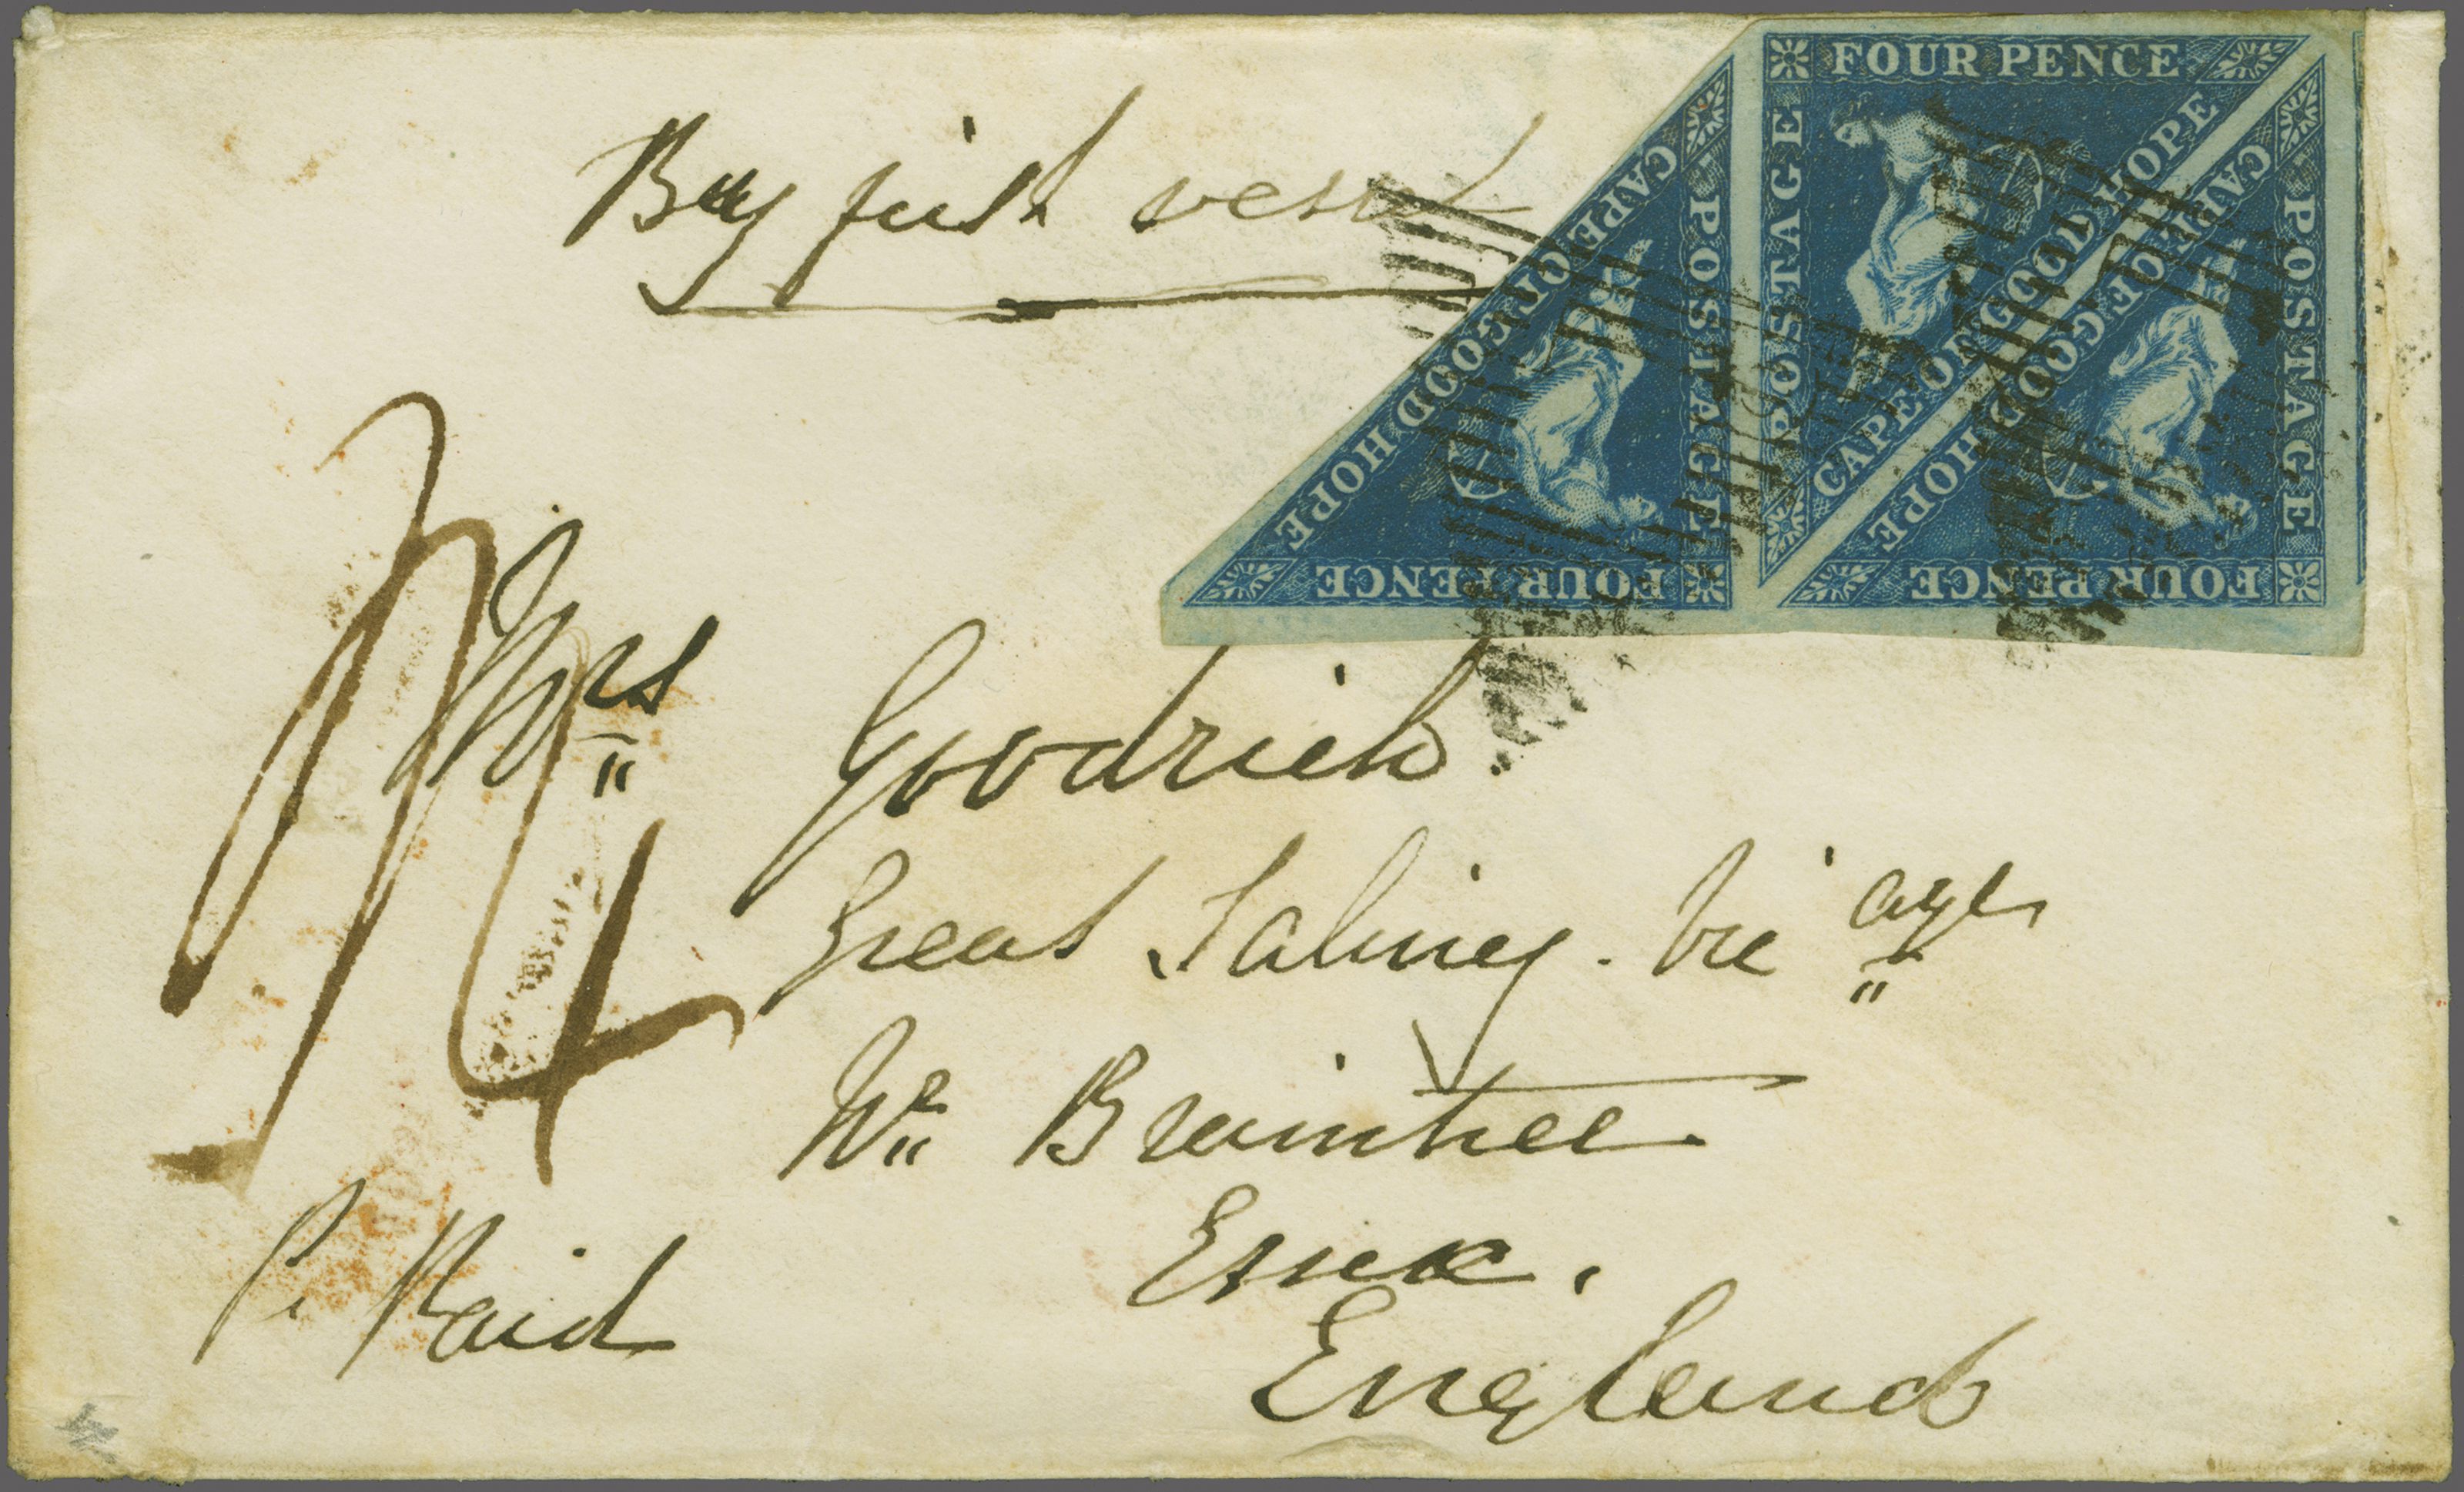 By first vessel
FOUR PENCE
POSTAGE
CAPE OF GOOD HOPE
CAPE OF GOOD HOPE
POSTAGE
FOUR PENCE
CAPE OF GOOD HOPE
POSTAGE
FOUR PENCE
Mrs Goodrich
Great Saling. Vicage
Nr Braintree
Essex.
England
P. Paid